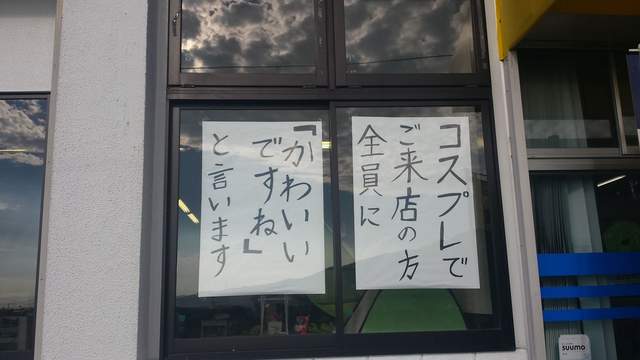 コスプレで
ご来店の方
全員に
「かわいい
ですね」
と言います
suumo